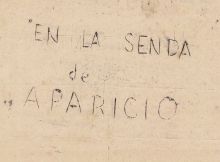 "EN LA SENDA
de
"APARICIO